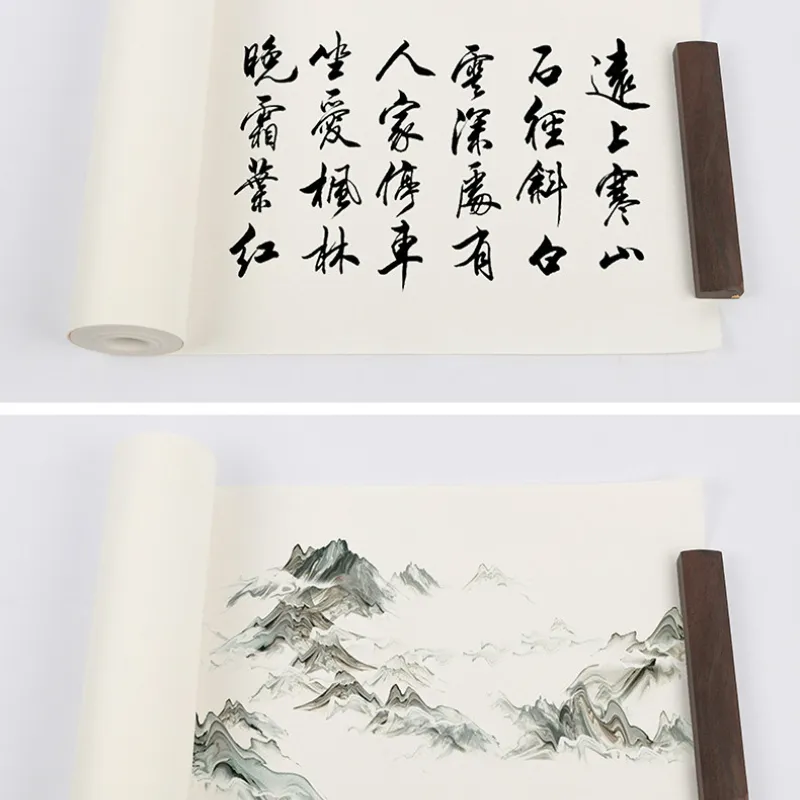 遠上寒山
石徑斜白
雲深處有
人家停車
坐愛楓林
晚霜葉紅